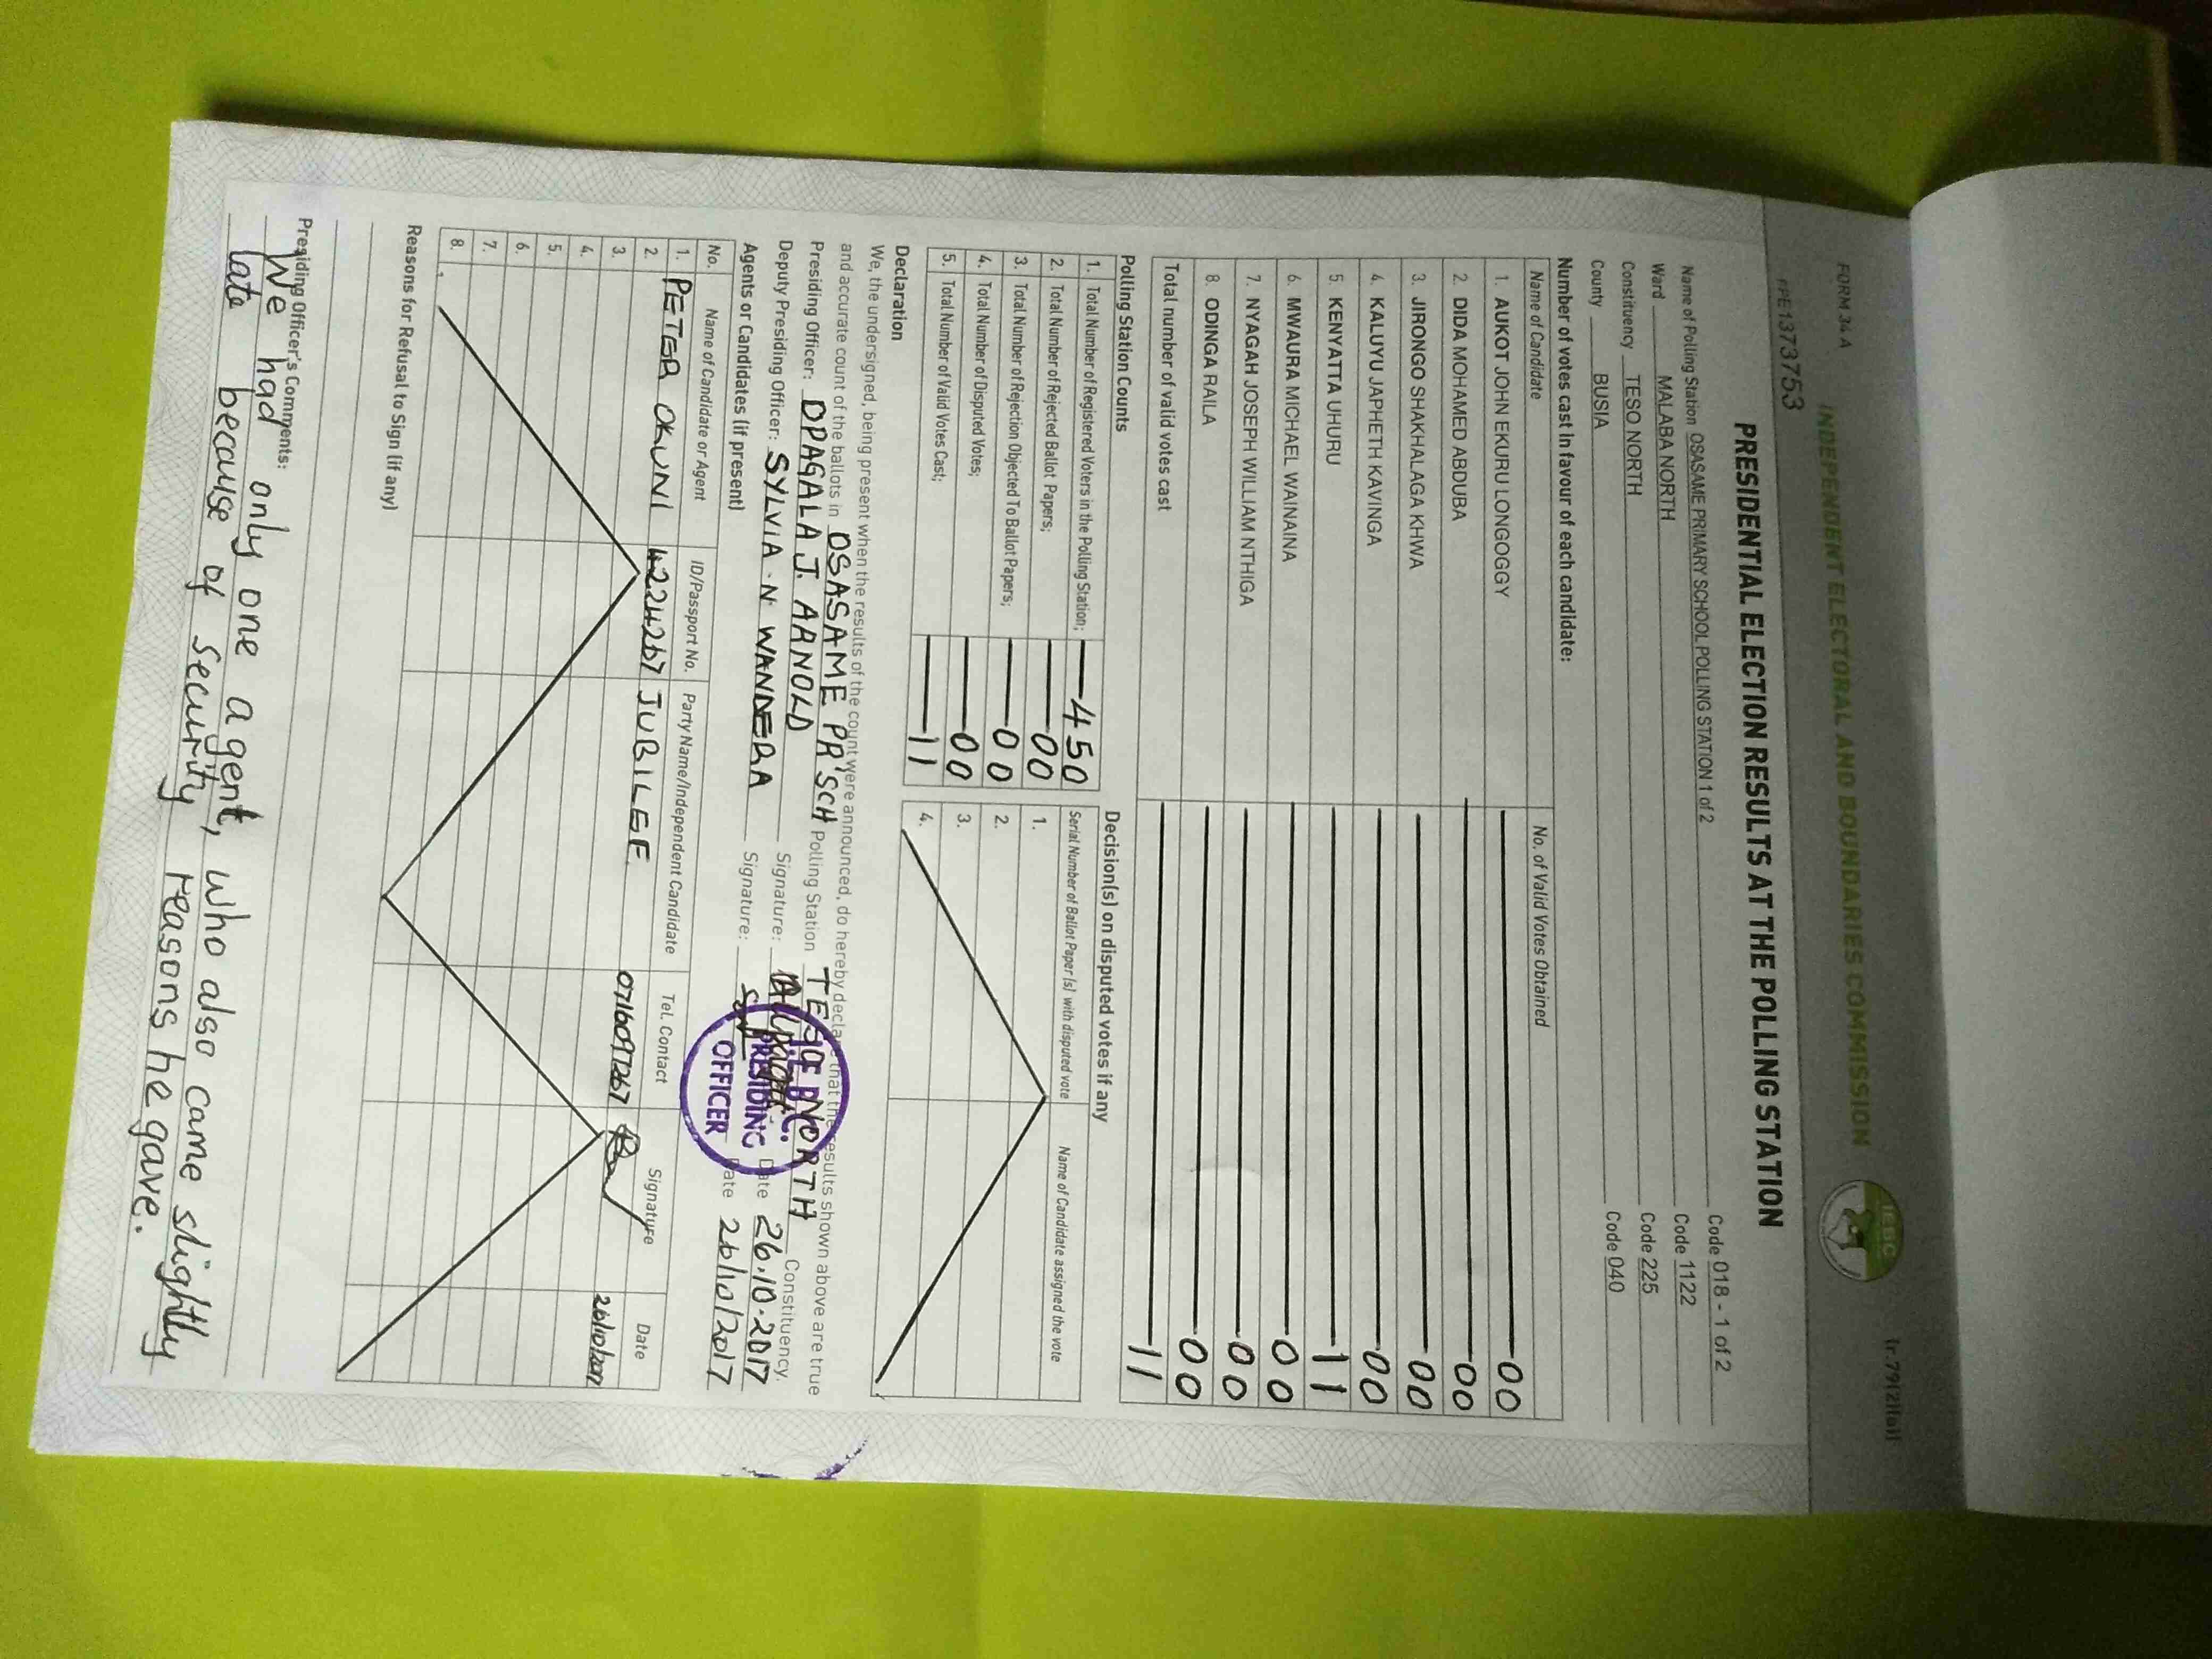 FORM 34A
INDEPENDENT ELECTORAL AND BOUNDARIES COMMISSION
IEBC
PRESIDENTIAL ELECTION RESULTS AT THE POLLING STATION
Name of Polling Station OSASAME PRIMARY SCHOOL POLLING STATION 1 of 2 Code 018 - 1 of 2
Ward MALABA NORTH Code 1122
Constituency TESO NORTH Code 225
County BUSIA Code 040
Number of votes cast in favour of each candidate:
Name of Candidate No. of Valid Votes Obtained
1. AUKOT JOHN EKURU LONGOGGY 00
2. DIDA MOHAMED ABDUBA 00
3. JIRONGO SHAKHALAGA KHWA 00
4. KALUYU JAPHETH KAVINGA 00
5. KENYATTA UHURU 11
6. MWAURA MICHAEL WAINAINA 00
7. NYAGAH JOSEPH WILLIAM NTHIGA 00
8. ODINGA RAILA 00
Total number of valid votes cast 11
Polling Station Counts
1. Total Number of Registered Voters in the Polling Station; 450
2. Total Number of Rejected Ballot Papers; 00
3. Total Number of Rejection Objected To Ballot Papers; 00
4. Total Number of Disputed Votes; 00
5. Total Number of Valid Votes Cast; 11
Decision(s) on disputed votes if any
Serial Number of Ballot Paper (s) with disputed vote Name of Candidate assigned the vote
1.
2.
3.
4.
Declaration
We, the undersigned, being present when the results of the count were announced, do hereby declare that the results shown above are true
and accurate count of the ballots in OSASAME PR'SCH Polling Station TESO NORTH Constituency.
Presiding Officer: OPAGALA J. ARNOLD Signature: Date 26.10.2017
Deputy Presiding Officer: SYLVIA .N. WANDERA Signature: Date 26/10/2017
PRESIDING
OFFICER
Agents or Candidates (if present)
No. Name of Candidate or Agent ID/Passport No. Party Name/Independent Candidate Tel. Contact Signature Date
1. PETER OKUNI JUBILEE 0716097267 26/10/2017
2.
3.
4.
5.
6.
7.
8.
Reasons for Refusal to Sign (if any)
Presiding Officer's Comments:
We had only one agent, who also came slightly
late because of security reasons he gave.